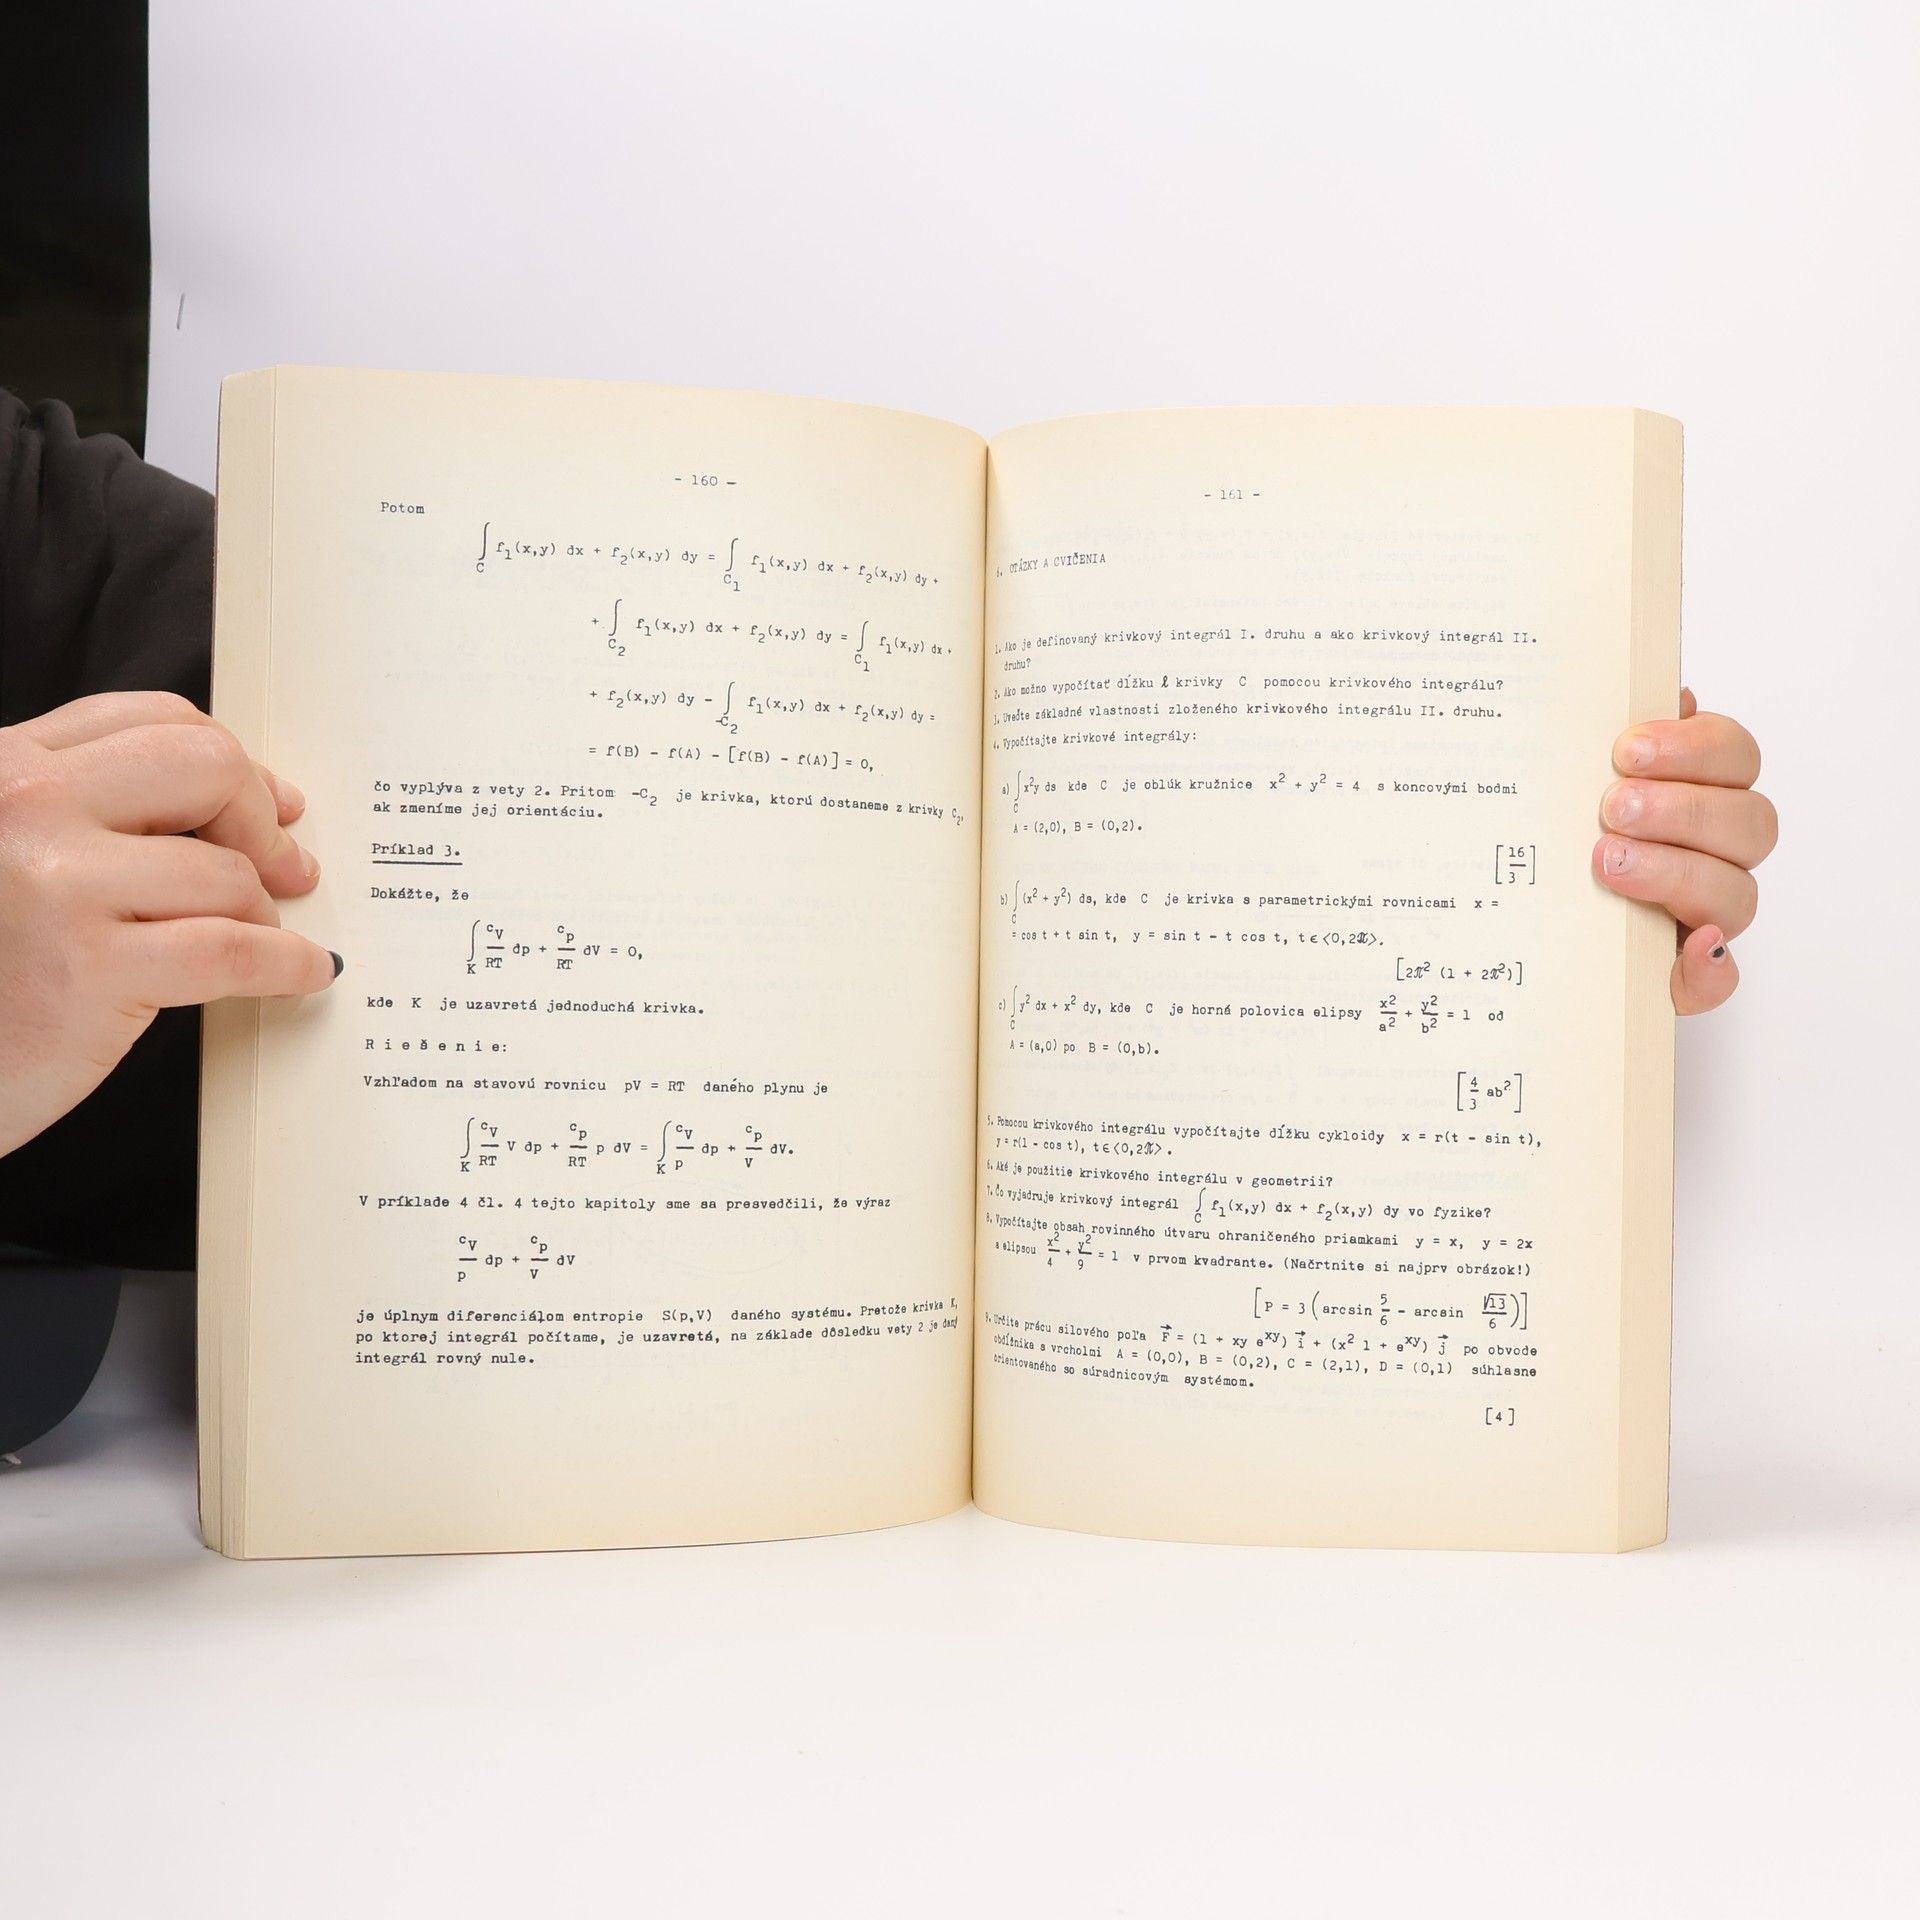 - 160 -
Potom
∫_C f₁(x,y) dx + f₂(x,y) dy = ∫_C₁ f₁(x,y) dx + f₂(x,y) dy +
+ ∫_C₂ f₁(x,y) dx + f₂(x,y) dy = ∫_C₁ f₁(x,y) dx +
+ f₂(x,y) dy - ∫_-C₂ f₁(x,y) dx + f₂(x,y) dy =
= f(B) - f(A) - [f(B) - f(A)] = 0,
čo vyplýva z vety 2. Pritom -C₂ je krivka, ktorú dostaneme z krivky C₂,
ak zmeníme jej orientáciu.
Príklad 3.
Dokážte, že
∫_K c_V/RT dp + c_p/RT dV = 0,
kde K je uzavretá jednoduchá krivka.
R i e š e n i e:
Vzhľadom na stavovú rovnicu pV = RT daného plynu je
∫_K c_V/RT V dp + c_p/RT p dV = ∫_K c_V/p dp + c_p/V dV.
V príklade 4 čl. 4 tejto kapitoly sme sa presvedčili, že výraz
c_V/p dp + c_p/V dV
je úplnym diferenciálom entropie S(p,V) daného systému. Pretože krivka K,
po ktorej integrál počítame, je uzavretá, na základe dôsledku vety 2 je daný
integrál rovný nule.
- 161 -
6. OTÁZKY A CVIČENIA
1. Ako je definovaný krivkový integrál I. druhu a ako krivkový integrál II.
druhu?
2. Ako možno vypočítať dĺžku ℓ krivky C pomocou krivkového integrálu?
3. Uveďte základné vlastnosti zloženého krivkového integrálu II. druhu.
4. Vypočítajte krivkové integrály:
a) ∫_C x²y ds kde C je oblúk kružnice x² + y² = 4 s koncovými bodmi
A = (2,0), B = (0,2).
[16/3]
b) ∫_C (x² + y²) ds, kde C je krivka s parametrickými rovnicami x =
= cos t + t sin t, y = sin t - t cos t, t ∈ ⟨0,2π⟩.
[2π² (1 + 2π²)]
c) ∫_C y² dx + x² dy, kde C je horná polovica elipsy x²/a² + y²/b² = 1 od
A = (a,0) po B = (0,b).
[4/3 ab²]
5. Pomocou krivkového integrálu vypočítajte dĺžku cykloidy x = r(t - sin t),
y = r(1 - cos t), t ∈ ⟨0,2π⟩.
6. Aké je použitie krivkového integrálu v geometrii?
7. Čo vyjadruje krivkový integrál ∫_C f₁(x,y) dx + f₂(x,y) dy vo fyzike?
8. Vypočítajte obsah rovinného útvaru ohraničeného priamkami y = x, y = 2x
a elipsou x²/4 + y²/9 = 1 v prvom kvadrante. (Načrtnite si najprv obrázok!)
[P = 3 (arcsin 5/6 - arcsin √13/6)]
9. Určite prácu silového poľa F⃗ = (1 + xy e^xy) i⃗ + (x² 1 + e^xy) j⃗ po obvode
obdĺžnika s vrcholmi A = (0,0), B = (0,2), C = (2,1), D = (0,1) súhlasne
orientovaného so súradnicovým systémom.
[4]